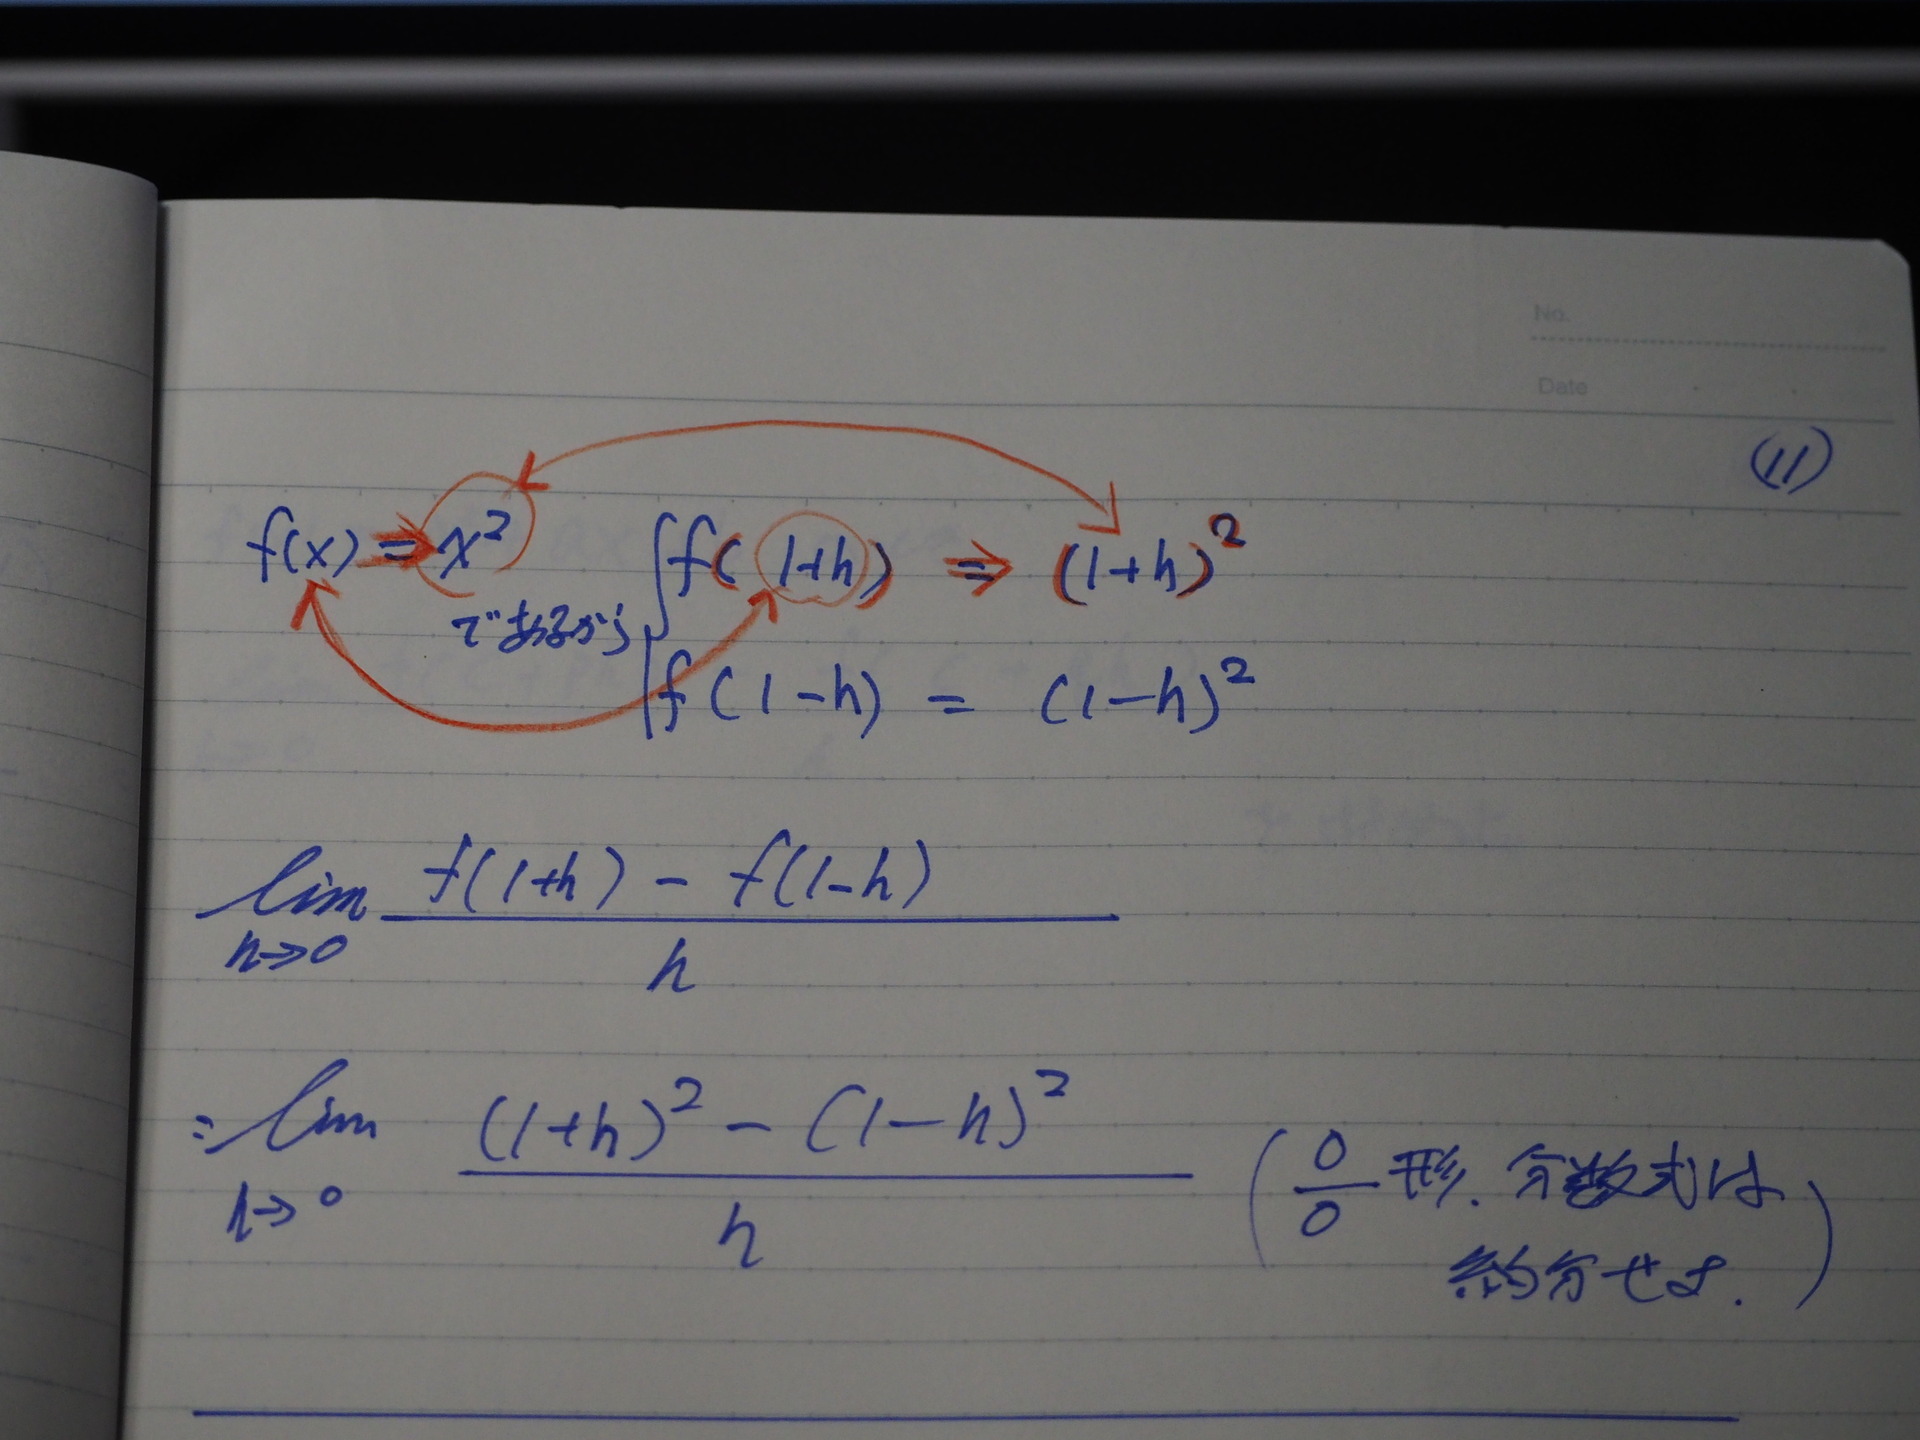 No.
Date
(11)
f(x) = x² であるから
f(1+h) ⇒ (1+h)²
f(1-h) = (1-h)²
lim h→0 f(1+h) - f(1-h) / h
= lim h→0 (1+h)² - (1-h)² / h (0/0 形. 分数式は
約分せよ.)